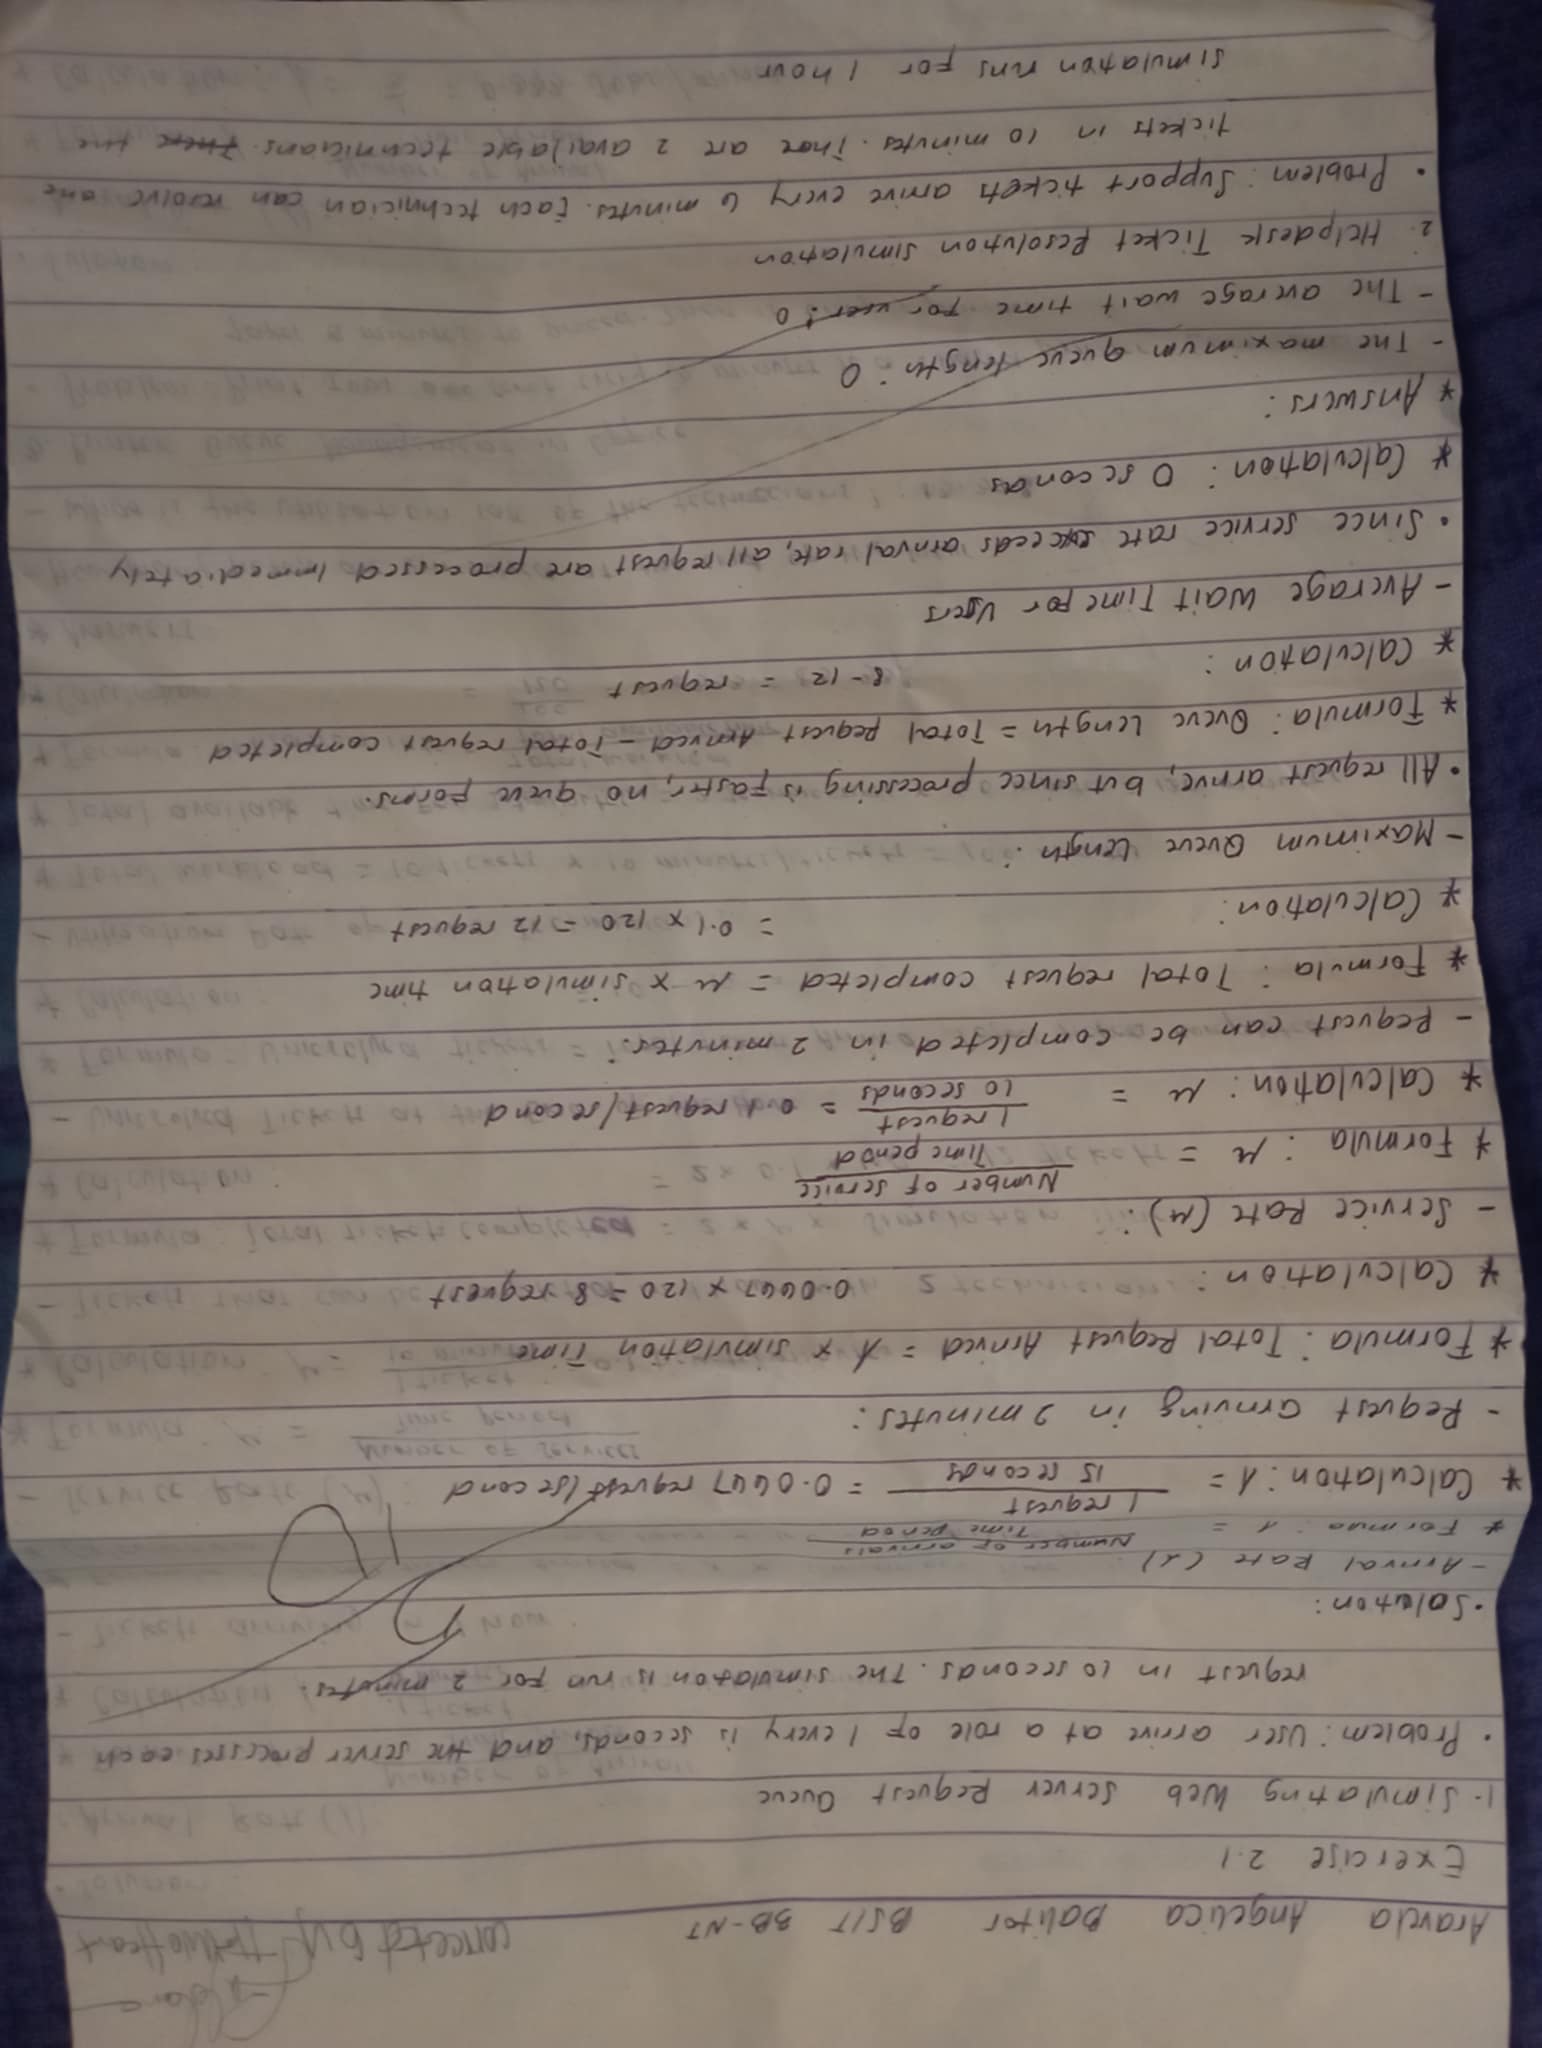 Aravela Angelica Balitor BSIT 3B-NT
corrected by
Exercise 2.1
1. Simulating Web Server Request Queue
• Problem: User arrive at a role of 1 every is seconds, and the server processes each
request in 10 seconds. The simulation is run for 2 minutes.
• Solution:
- Arrival Rate (λ).
* Formula: λ = Number of arrivals / Time period
* Calculation: λ = 1 request / 15 seconds = 0.0667 request/second
- Request arriving in 2 minutes:
* Formula: Total Request Arrived = λ x simulation Time
* Calculation: 0.0667 x 120 = 8 request
- Service Rate (μ):
* Formula: μ = Number of service / Time period
* Calculation: μ = 1 request / 10 seconds = 0.1 request/second
- Request can be completed in 2 minutes:
* Formula: Total request completed = μ x simulation time
= 0.1 x 120 = 12 request
* Calculation:
- Maximum Queue Length:
• All request arrive, but since processing is faster, no queue forms.
* Formula: Queue Length = Total Request Arrived - Total request completed
* Calculation: 8-12 = request
- Average Wait Time For Users
• Since service rate exceeds arrival rate, all request are processed Immediately
* Calculation: 0 seconds
* Answers:
- The maximum queue length: 0
- The average wait time for user: 0
2. Helpdesk Ticket Resolution simulation
• Problem: Support tickets arrive every 6 minutes. Each technician can resolve one
tickets in 10 minutes. There are 2 available technicians. There the
simulation runs for 1 hour